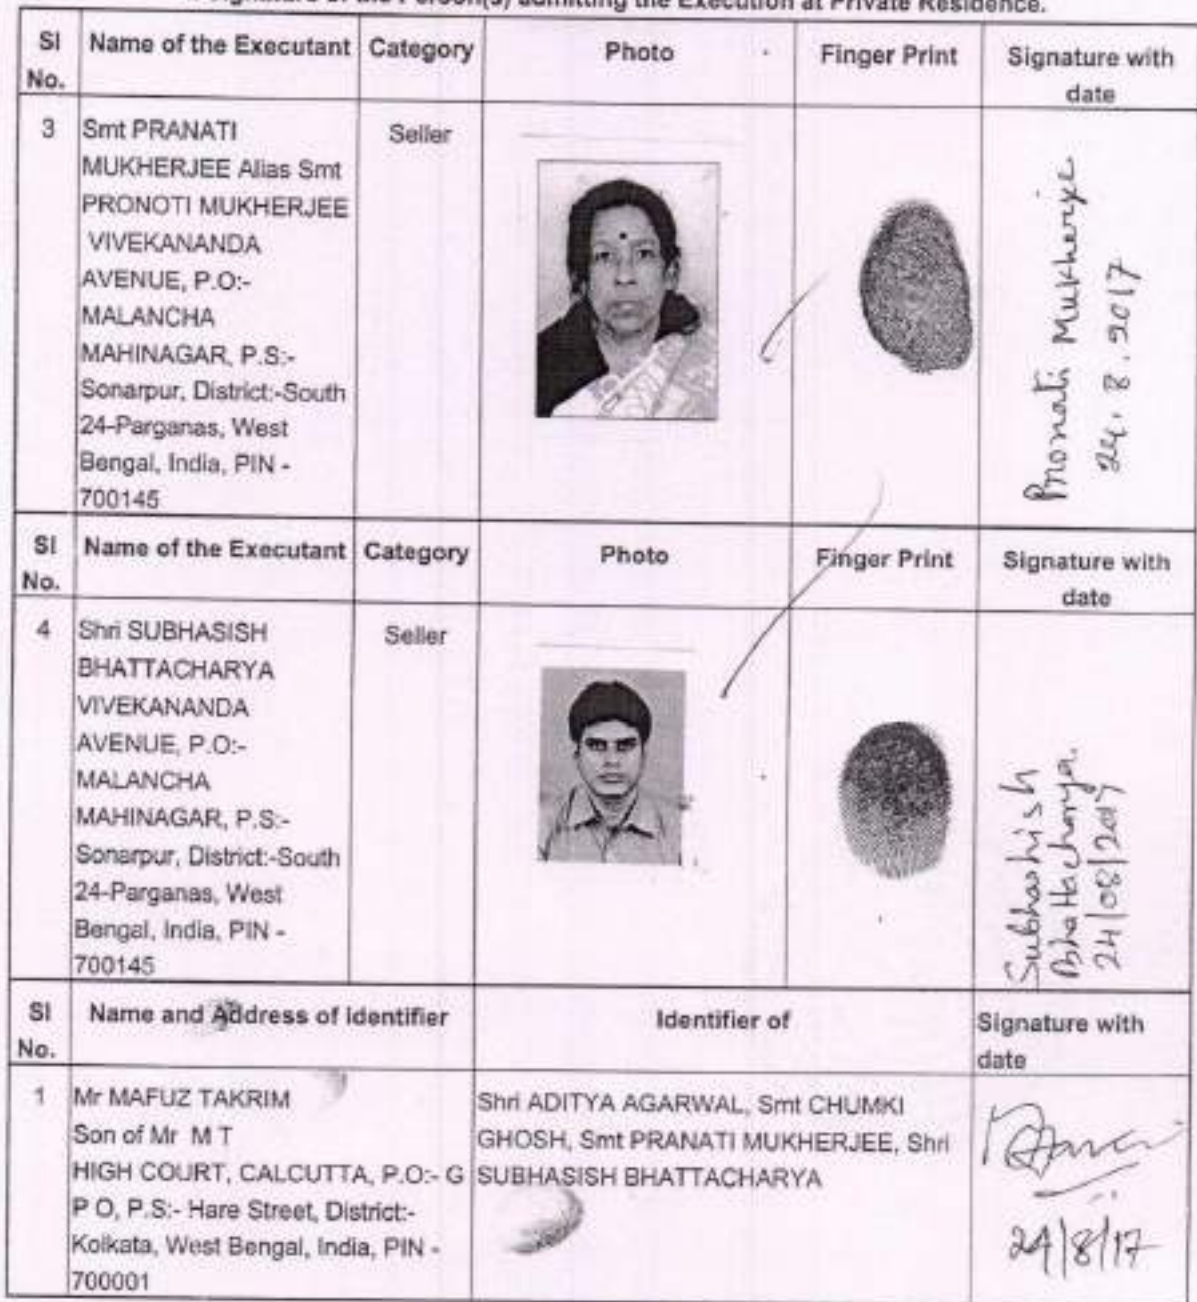 Signature of the Person(s) admitting the Execution at Private Residence.
Sl No. Name of the Executant Category Photo Finger Print Signature with date
3 Smt PRANATI Seller
MUKHERJEE Alias Smt
PRONOTI MUKHERJEE
VIVEKANANDA
AVENUE, P.O:-
MALANCHA
MAHINAGAR, P.S:-
Sonarpur, District:-South
24-Parganas, West
Bengal, India, PIN -
700145
Pronati Mukherjee
24.8.2017
Sl No. Name of the Executant Category Photo Finger Print Signature with date
4 Shri SUBHASISH Seller
BHATTACHARYA
VIVEKANANDA
AVENUE, P.O:-
MALANCHA
MAHINAGAR, P.S:-
Sonarpur, District:-South
24-Parganas, West
Bengal, India, PIN -
700145
Subhashish
Bhattacharya.
24/08/2017
Sl No. Name and Address of identifier Identifier of Signature with date
1 Mr MAFUZ TAKRIM
Son of Mr M T
HIGH COURT, CALCUTTA, P.O:- G
P O, P.S:- Hare Street, District:-
Kolkata, West Bengal, India, PIN -
700001
Shri ADITYA AGARWAL, Smt CHUMKI
GHOSH, Smt PRANATI MUKHERJEE, Shri
SUBHASISH BHATTACHARYA
24/8/17